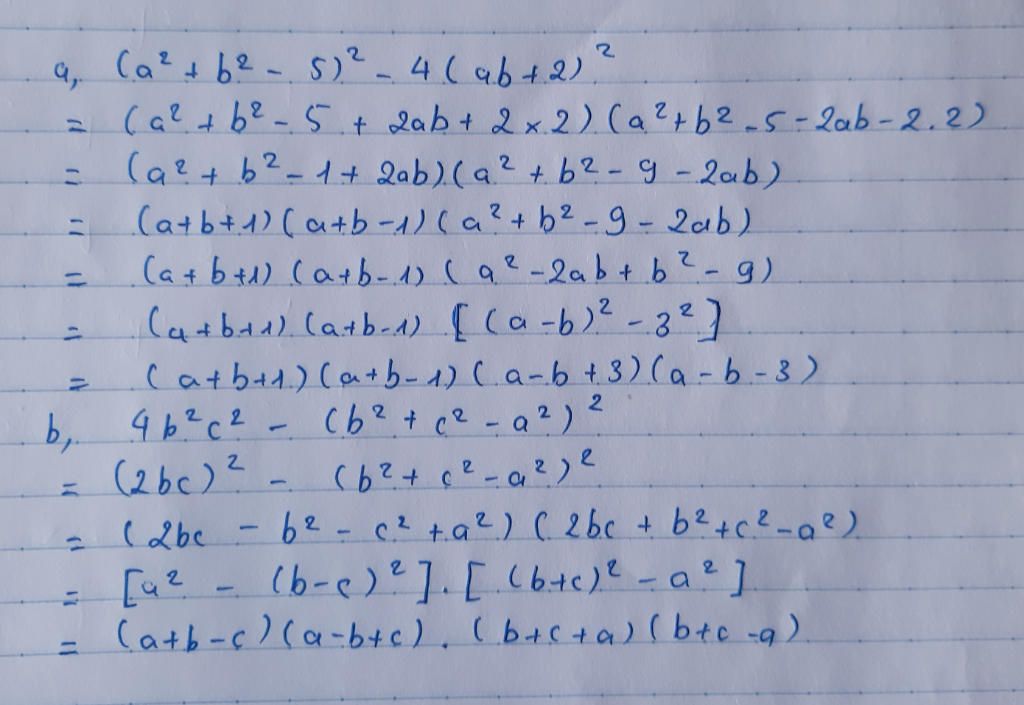 a, (a² + b² - 5)² - 4(ab + 2)²
= (a² + b² - 5 + 2ab + 2 × 2)(a² + b² - 5 - 2ab - 2.2)
= (a² + b² - 1 + 2ab)(a² + b² - 9 - 2ab)
= (a+b+1)(a+b-1)(a² + b² - 9 - 2ab)
= (a+b+1)(a+b-1)(a² - 2ab + b² - 9)
= (a+b+1)(a+b-1)[(a-b)² - 3²]
= (a+b+1)(a+b-1)(a-b+3)(a-b-3)
b, 4b²c² - (b² + c² - a²)²
= (2bc)² - (b² + c² - a²)²
= (2bc - b² - c² + a²)(2bc + b² + c² - a²)
= [a² - (b-c)²].[(b+c)² - a²]
= (a+b-c)(a-b+c).(b+c+a)(b+c-a)